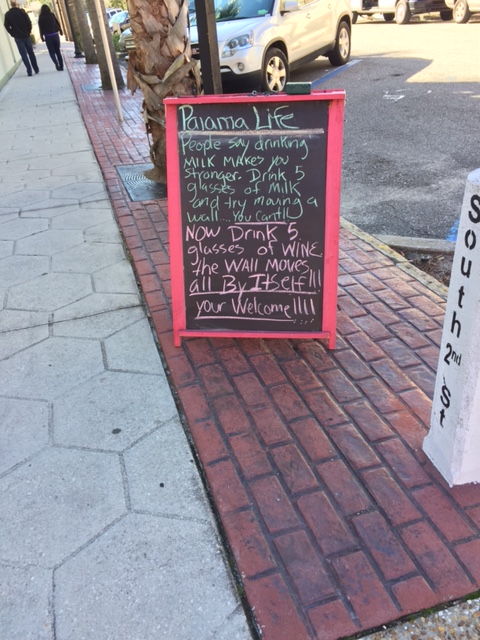 Pajama Life
People say drinking
milk makes you
stronger. Drink 5
glasses of Milk
and try moving a
wall...You Cant!!
NOW Drink 5
glasses of WINE
the WAll MOVES
all By ITself!!!
your Welcome!!!!
South 2nd St